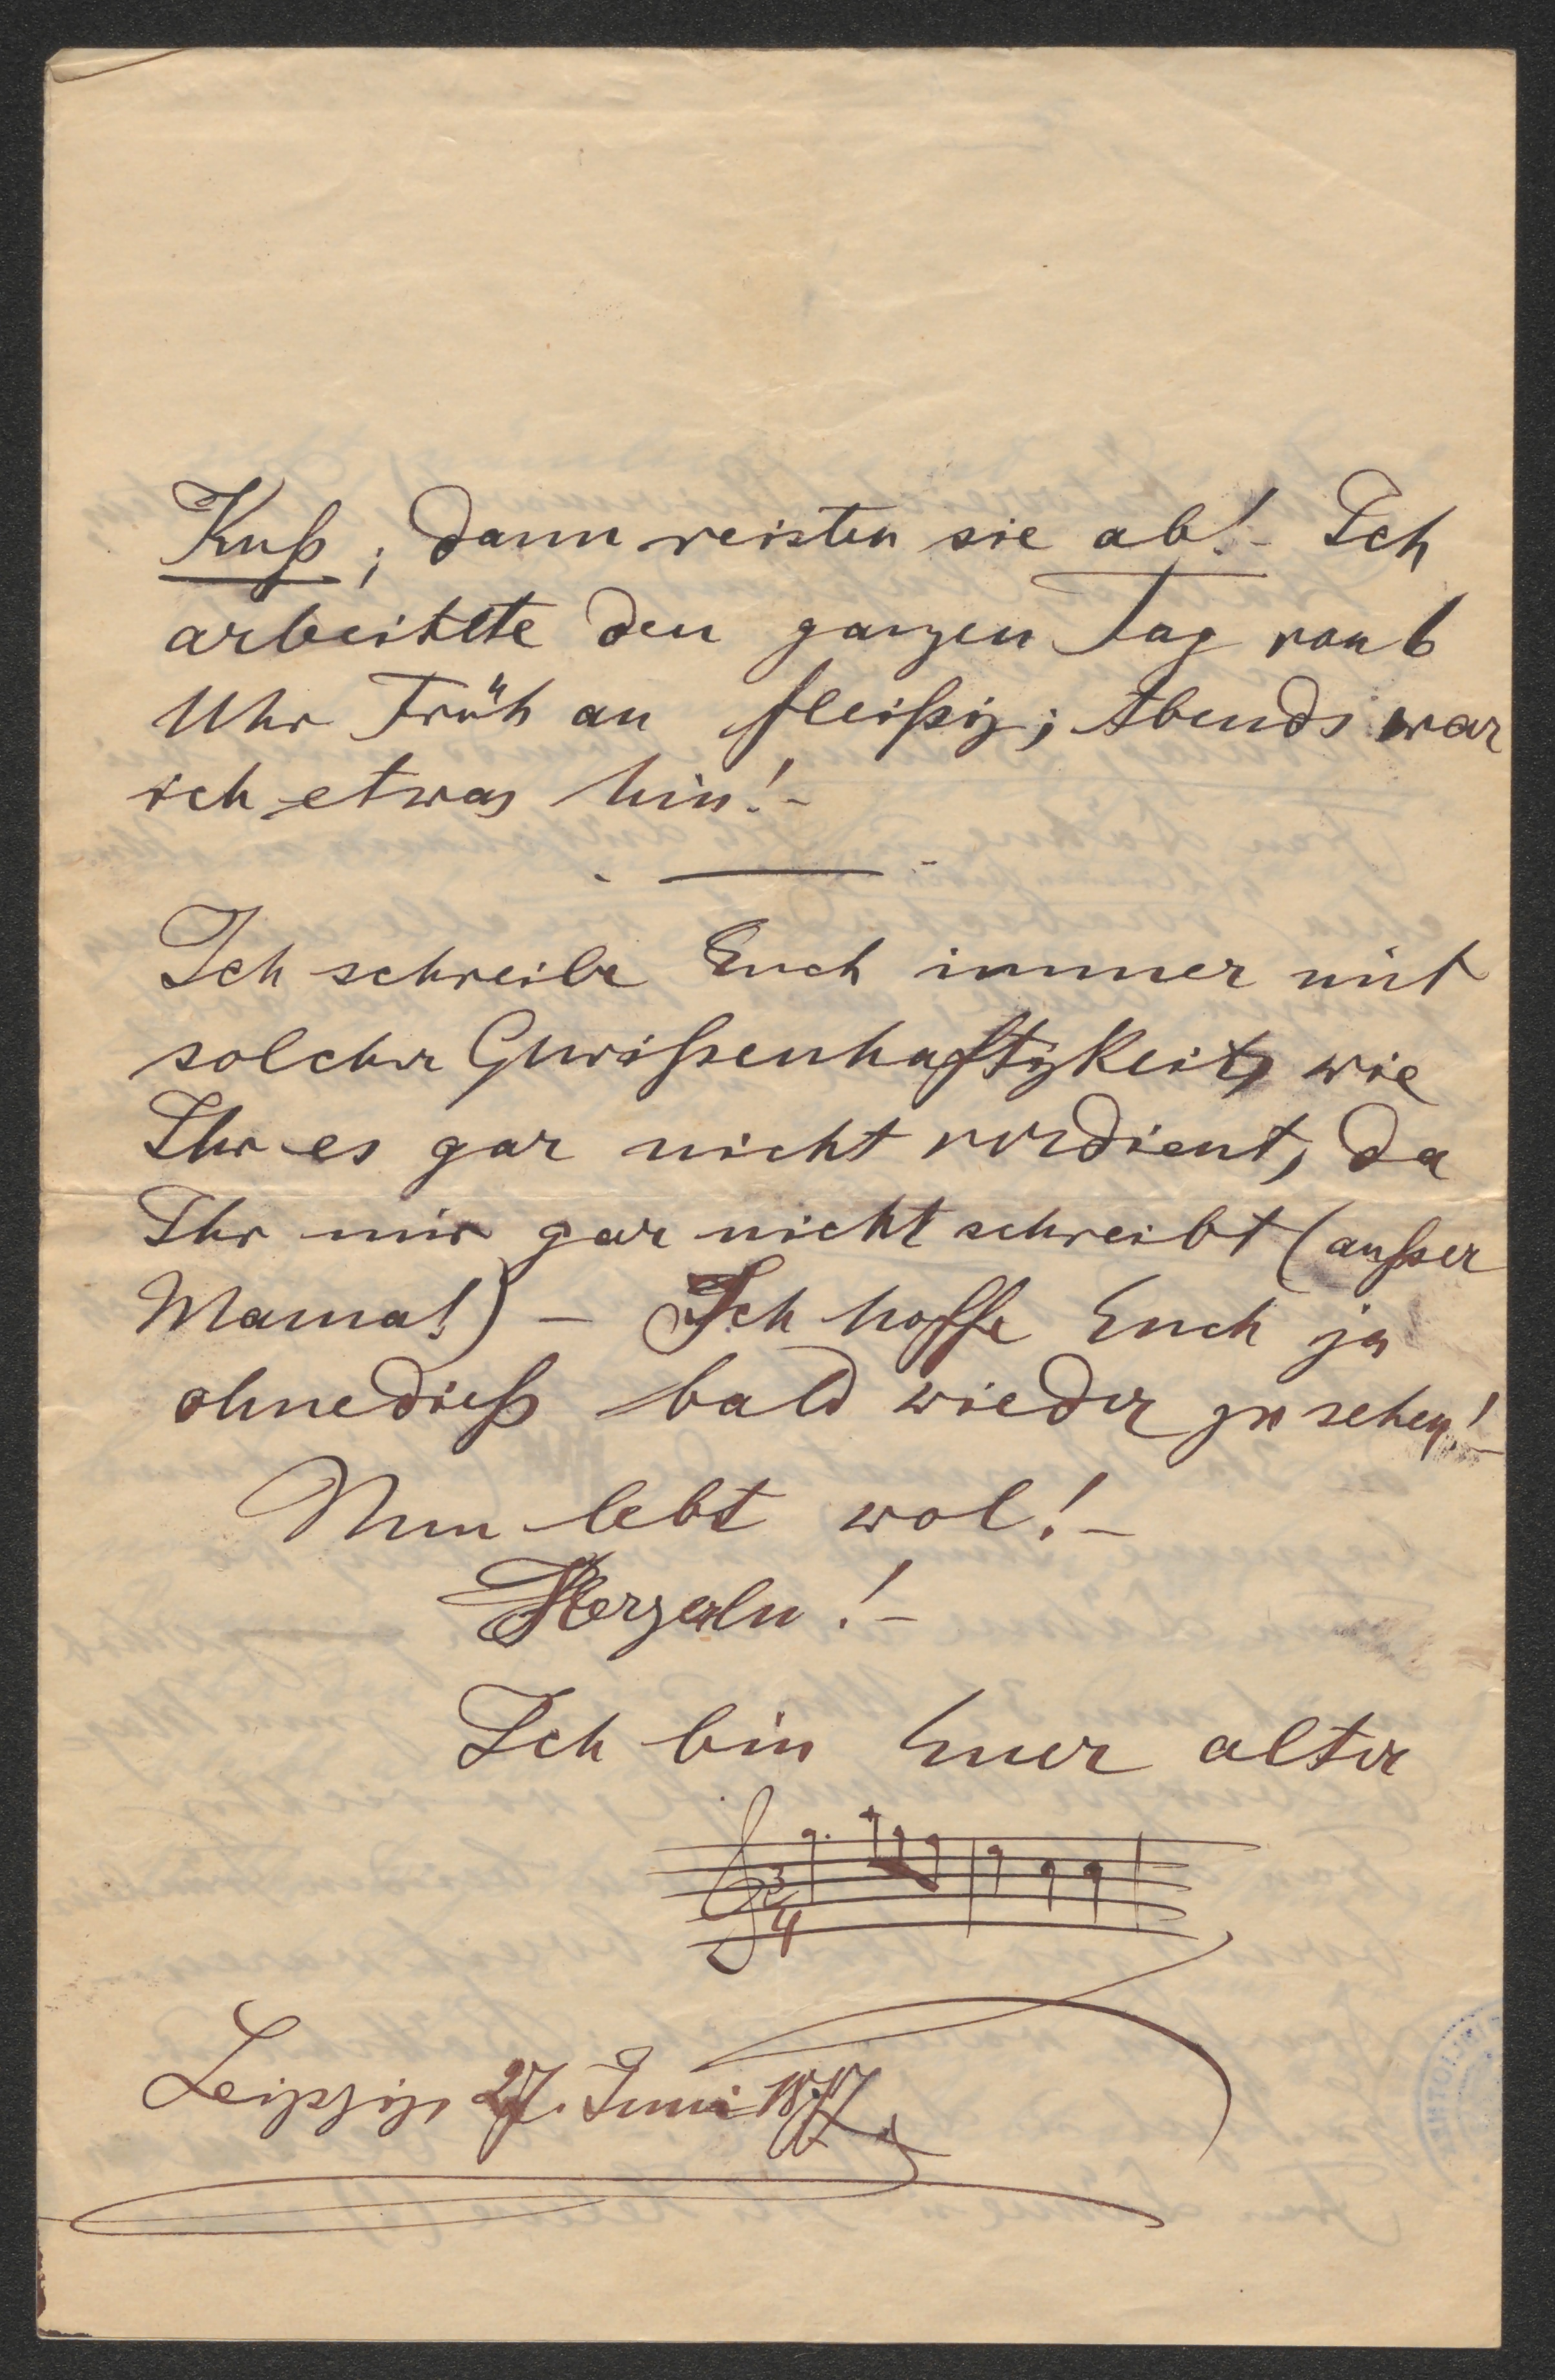 Kuß; dann reisten sie ab! – Ich
arbeitete den ganzen Tag von 6
Uhr Früh an fleißig; Abends war
ich etwas hin! –
Ich schreibe Euch immer mit
solcher Gewißenhaftigkeit, wie
Ihr es gar nicht verdient, da
Ihr mir gar nicht schreibt (außer
Mama!) – Ich hoffe Euch ja
ohnedieß bald wieder zu sehen! –
Nun lebt wol! –
Herzerln! –
Ich bin Euer alter
3
4
Leipzig, 27. Juni